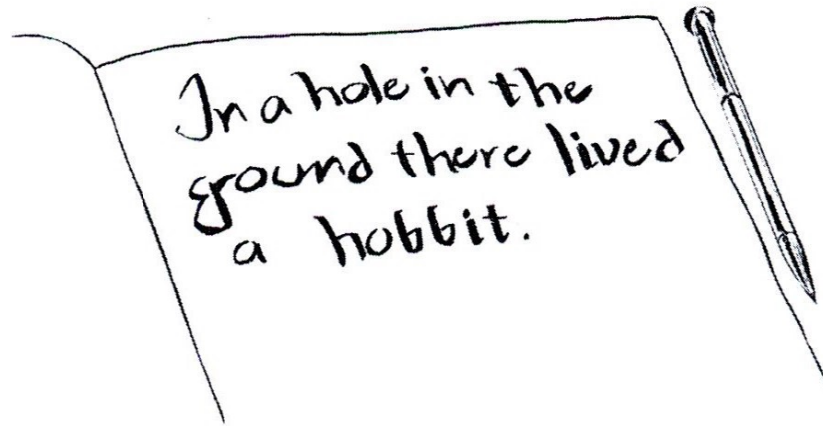 In a hole in the
ground there lived
a hobbit.